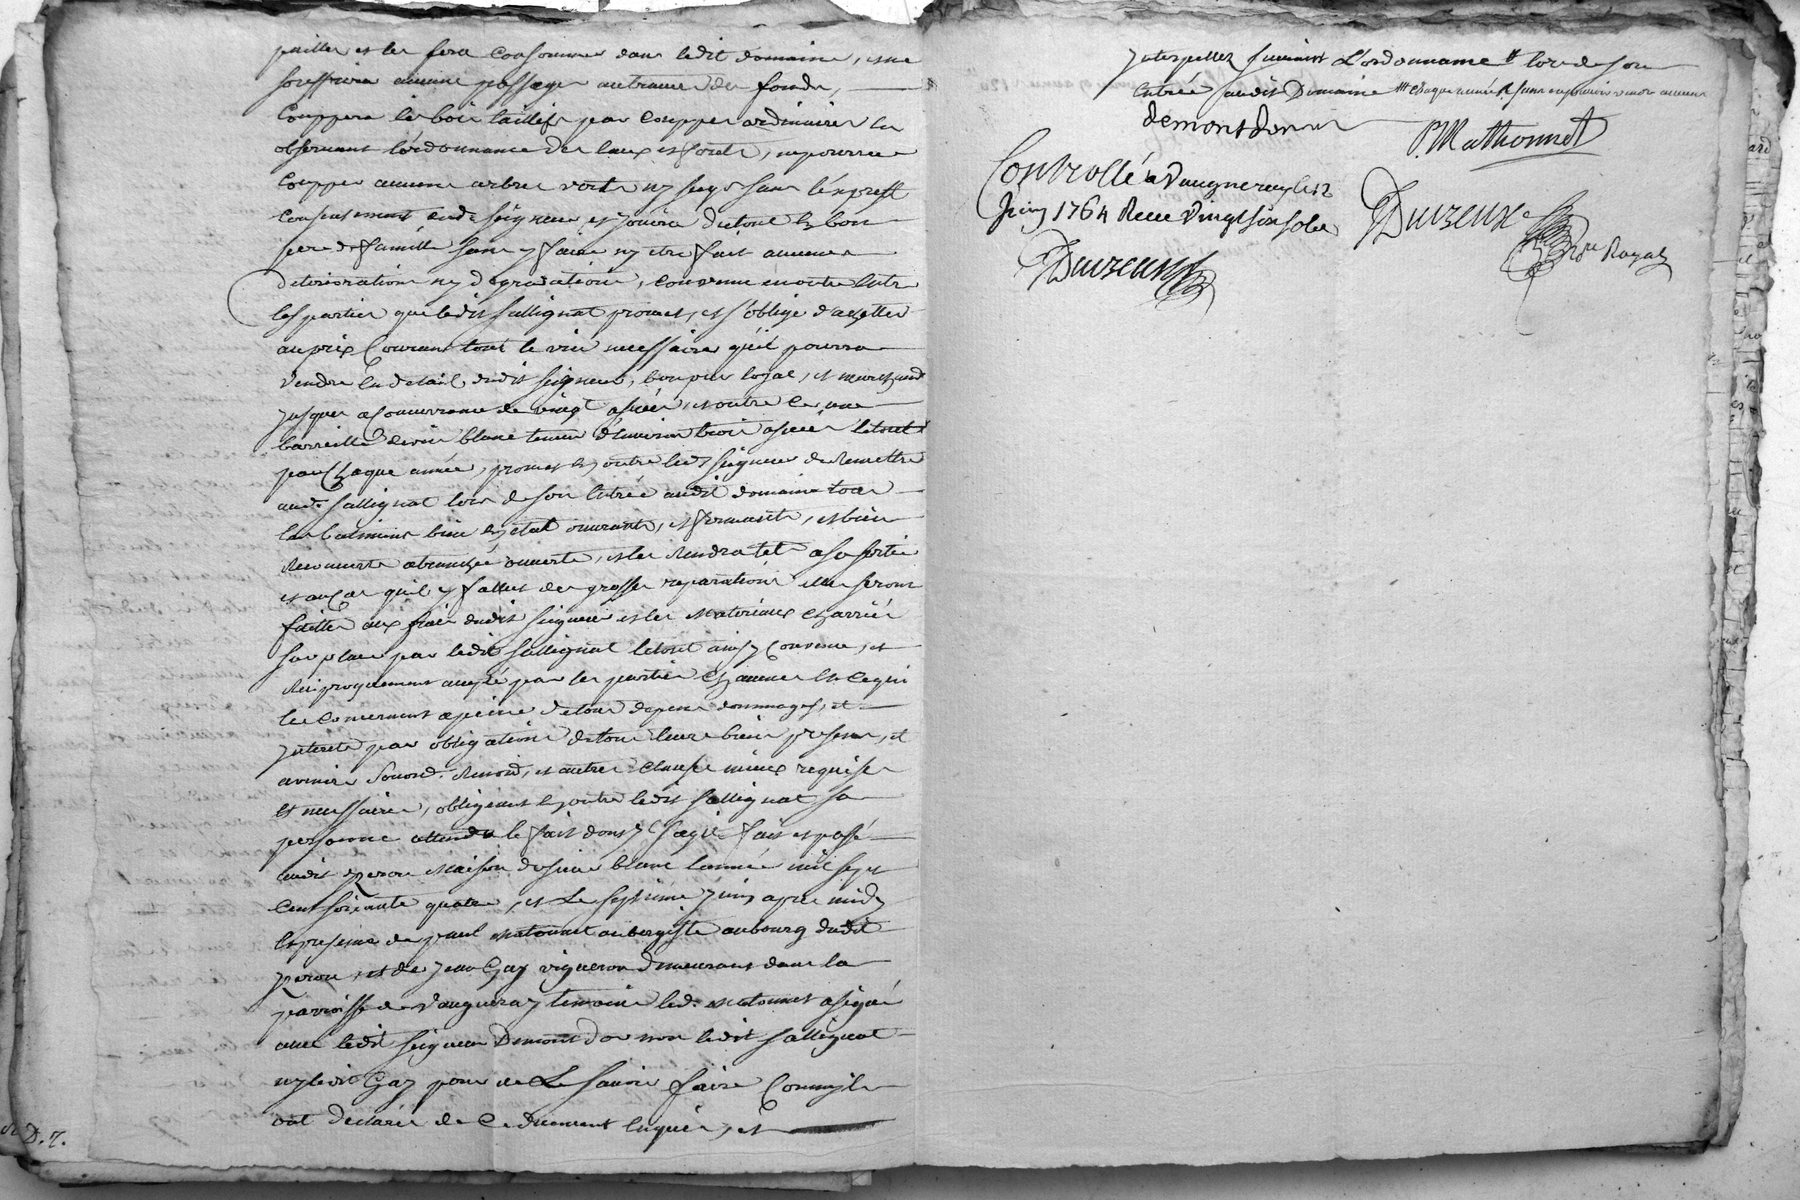 pailles et les fera consommer dans ledit domaine, et ne
souffrira aucune passage autravers des fonds,
Couppera les bois taillifs par Couppes ordinaires En
observant l'ordonnance des Eaux et foretz, ne pourra
Coupper aucuns arbres verts ny secqs sans l'exprest
consentement dud. seigneur et jouira du tout En bon
pere de famille sans y faire ny etre fait aucunes
deteriorations ny degradations, convenu en outre Entre
les parties que ledit Sallignat promet, et s'oblige d'acepter
au prix Courant tout le vin necessaire qu'il pourra
vendre En detail dudit seigneur, bon pur loyal, et marchand
jusques a Concurrance de vingt asnées, et outre ce une
barreille de vin blanc teneur d'environ trois asnées letout
par Chaque année, promet En outre led. seigneur de Remettre
aud. Sallignat lors de son Entrée audit domaine tous
les batimens bien En etat ouvrants, et fermants, et bien
Recouverts a tranchée ouverte, et les Rendra tels a sa sortie
et au cas qu'il y fallut de grosses reparations elles seront
faittes aux frais dudit seigneur et les Materiaux charriés
sur place par ledit Sallignat letout ainsy Convenu, et
Reciproquement accepté par les parties Chacunes En ce qui
les Concernent a peine de tous depens dommages, et
interets par obligations de tous leurs biens presens, et
avenir Soumd. Renond, et autres clauses mieux requises
Et necessaires, obligeant En outre ledit Sallignat sa
personne attendu le fait dont y s'agit fait et passé
audit yzeron Maison de sieur blanc l'année mil sept
Cent soixante quatre, et Le septieme juin apres midy
En presence de paul Matonnet aubergiste au bourg dudit
yzeron, et de jean Gay vigneron demeurant dans la
parroisse de Vaugneray temoins led. Matonnet a signé
avec ledit seigneur Demontdor non ledit Sallignat
ny ledit Gay pour ne Le savoir faire Comme ils
ont declarés de Ce duement Enquis, et
D. 7.
interpellez suivant L'ordonnance # lors de son
Entrée audit Domaine ### chaque année # sans en pouvoir vendre aucune
demontdor
P. Mathonnet
Controllé a Vaugneray le 12
Juin 1764 Receu Vingt six sols
Duvzeux
Duvzeux
Nre Royal